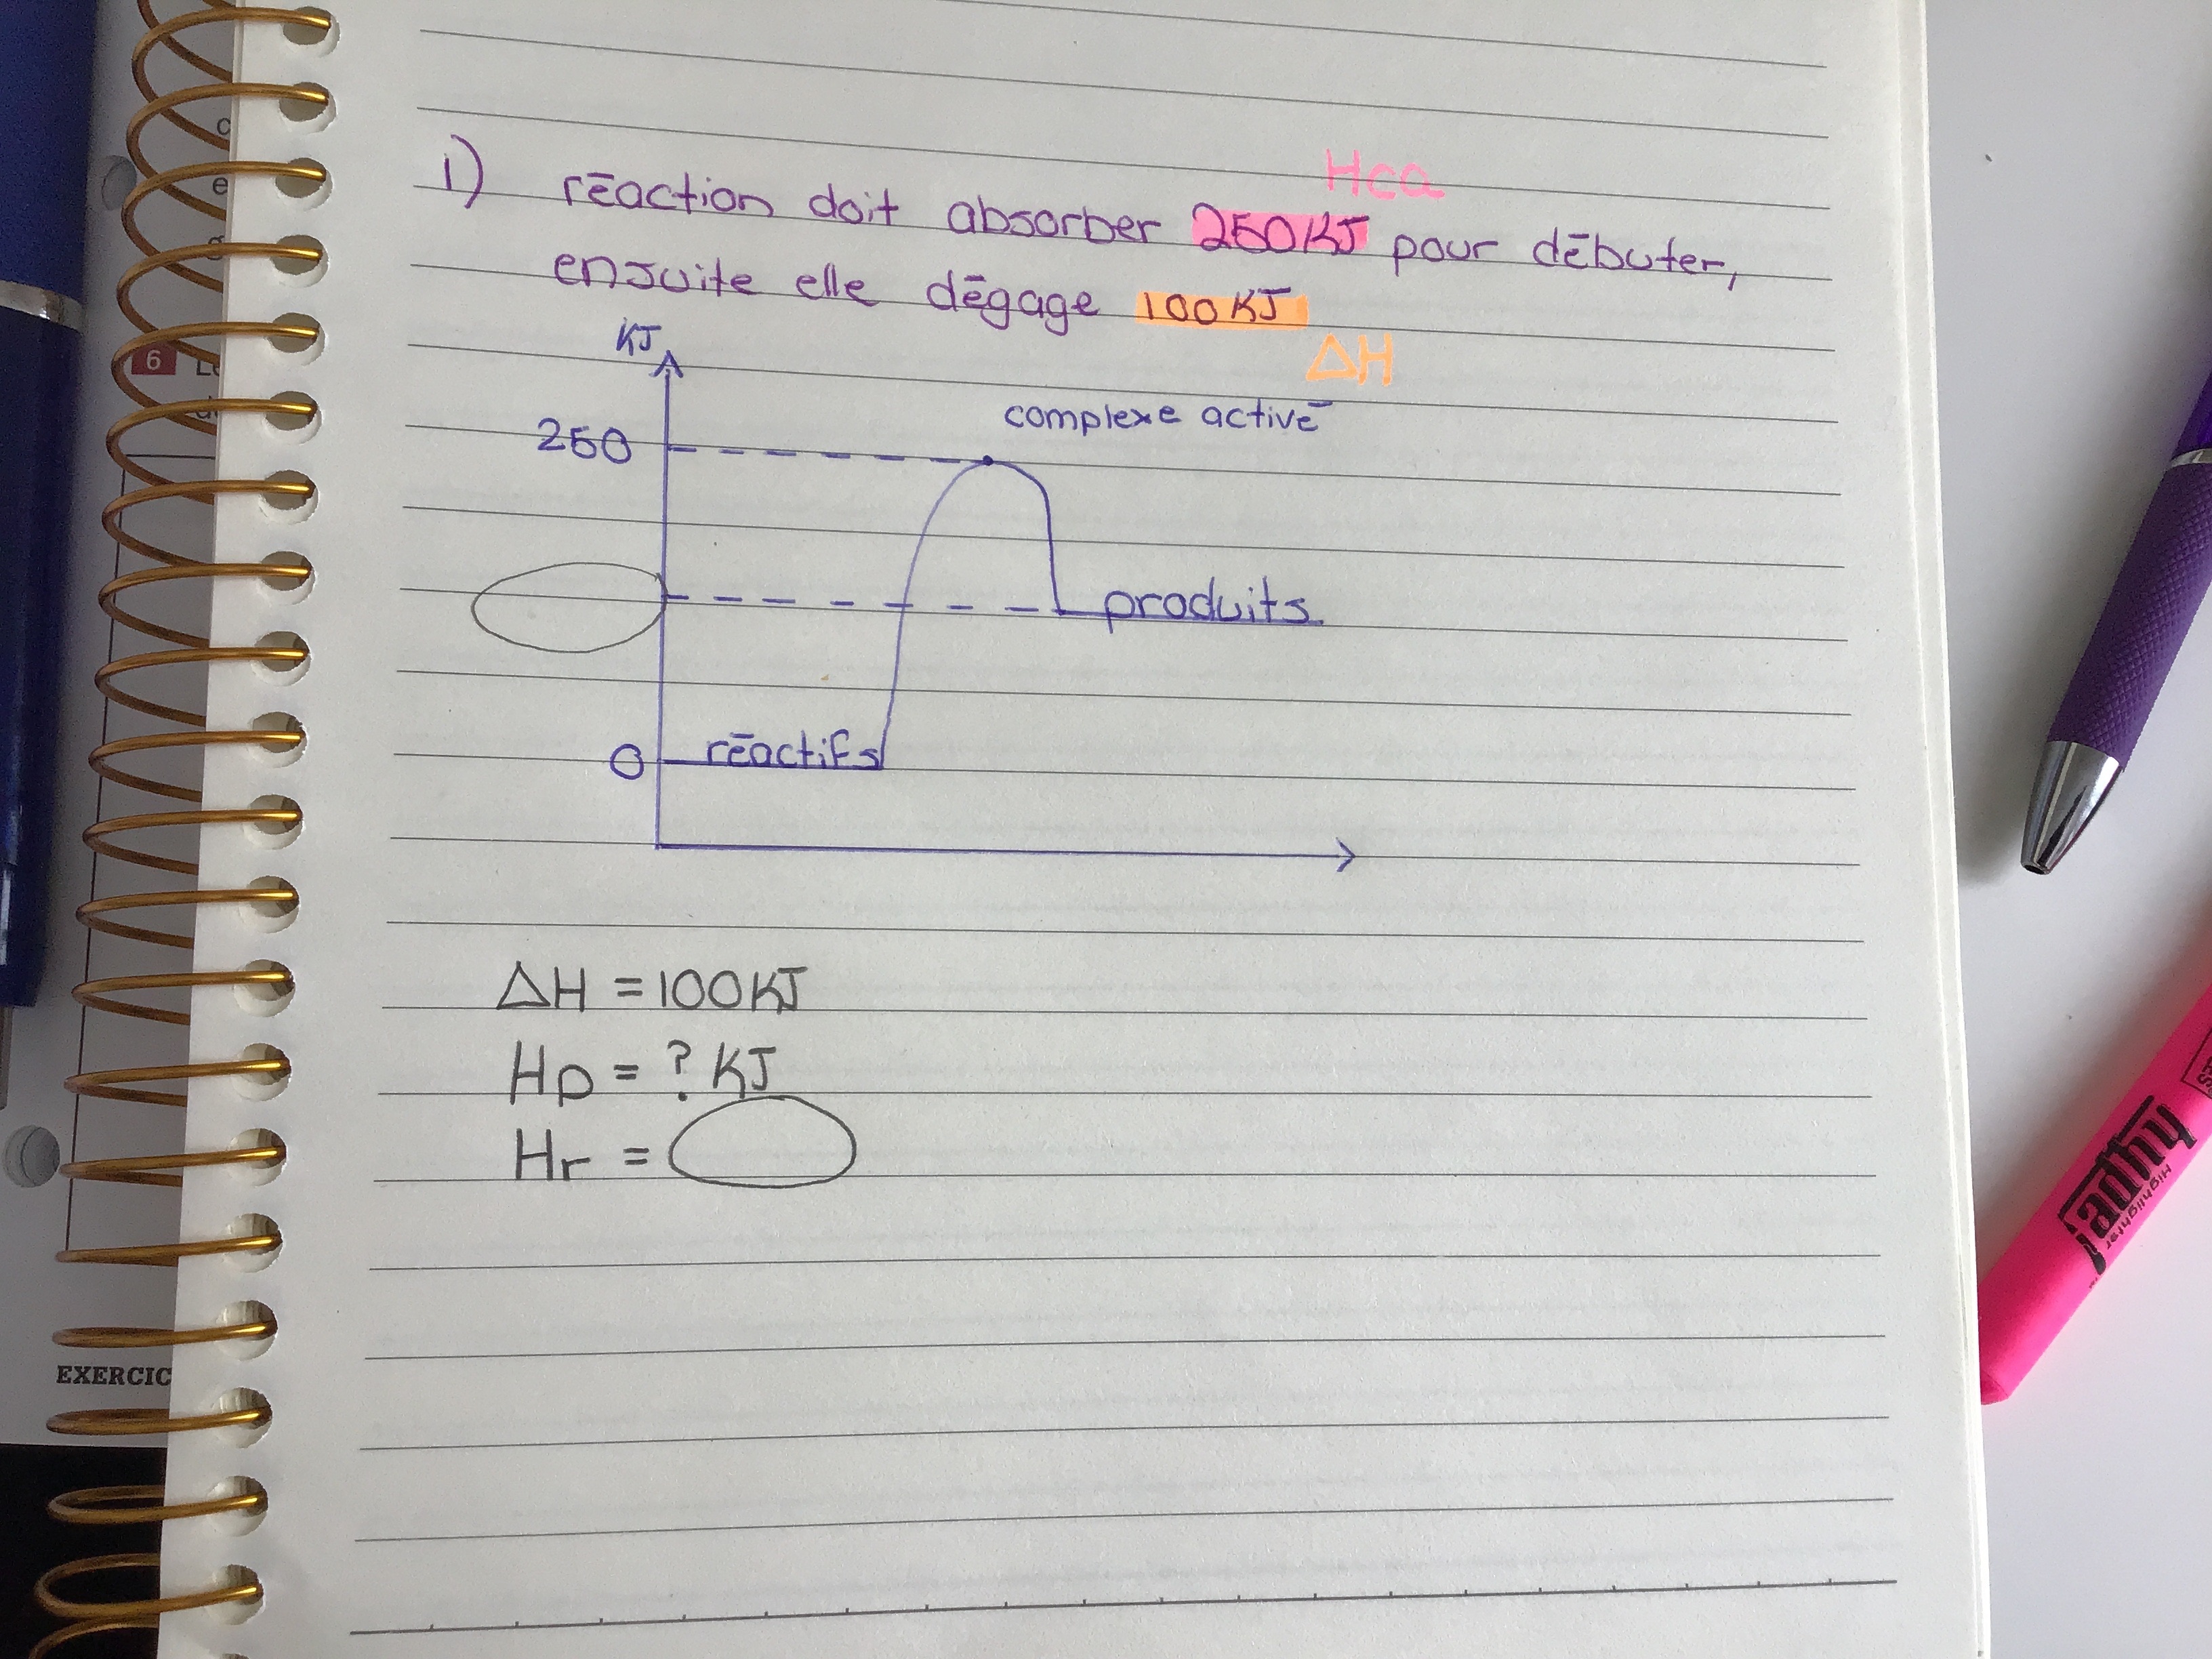 1) réaction doit absorber 250KJ pour débuter,
Hca
ensuite elle dégage 100KJ
ΔH
KJ
complexe activé
250
produits
0 réactifs
ΔH = 100KJ
Hp = ? KJ
Hr =
6
EXERCIC
jadhy
Highlighter